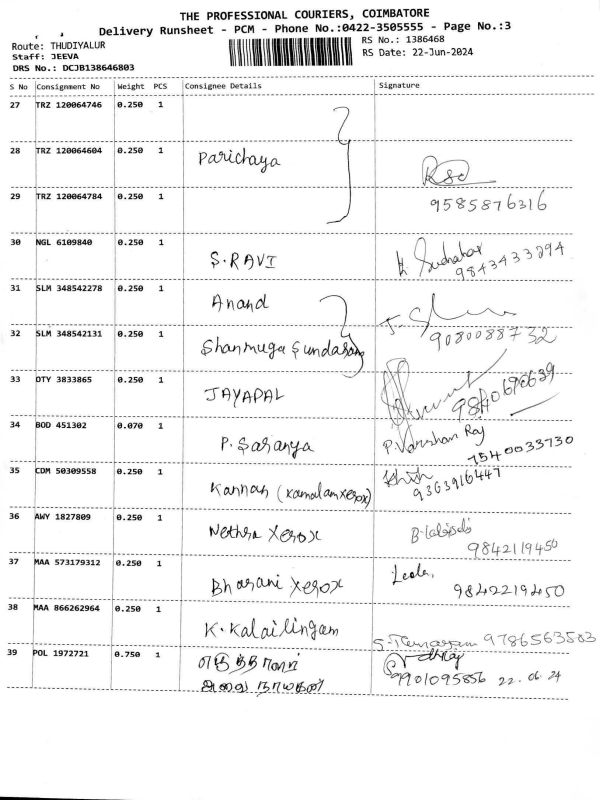 THE PROFESSIONAL COURIERS, COIMBATORE
Delivery Runsheet - PCM - Phone No.:0422-3505555 - Page No.:3
Route: THUDIYALUR
Staff: JEEVA
DRS No.: DCJB138646803
RS No.: 1386468
RS Date: 22-Jun-2024
S No Consignment No Weight PCS Consignee Details Signature
27 TRZ 120064746 0.250 1
28 TRZ 120064604 0.250 1 Parichaya
29 TRZ 120064784 0.250 1 9585876316
30 NGL 6109840 0.250 1 S.RAVI
9843433294
31 SLM 348542278 0.250 1 Anand
32 SLM 348542131 0.250 1 Shanmuga Sundaram 9080088732
33 OTY 3833865 0.250 1 JAYAPAL 9840690639
34 BOD 451302 0.070 1 P. Saranya P. Varshan Raj
7540033730
35 CDM 50309558 0.250 1 Kannan (Kamalam Xerox) 9363916447
36 AWY 1827809 0.250 1 Nethra Xerox
9842119450
37 MAA 573179312 0.250 1 Bharani Xerox Leela,
9842219450
38 MAA 866262964 0.250 1 K. Kalailingam
9786563583
39 POL 1972721 0.750 1
9901095856 22.06.24